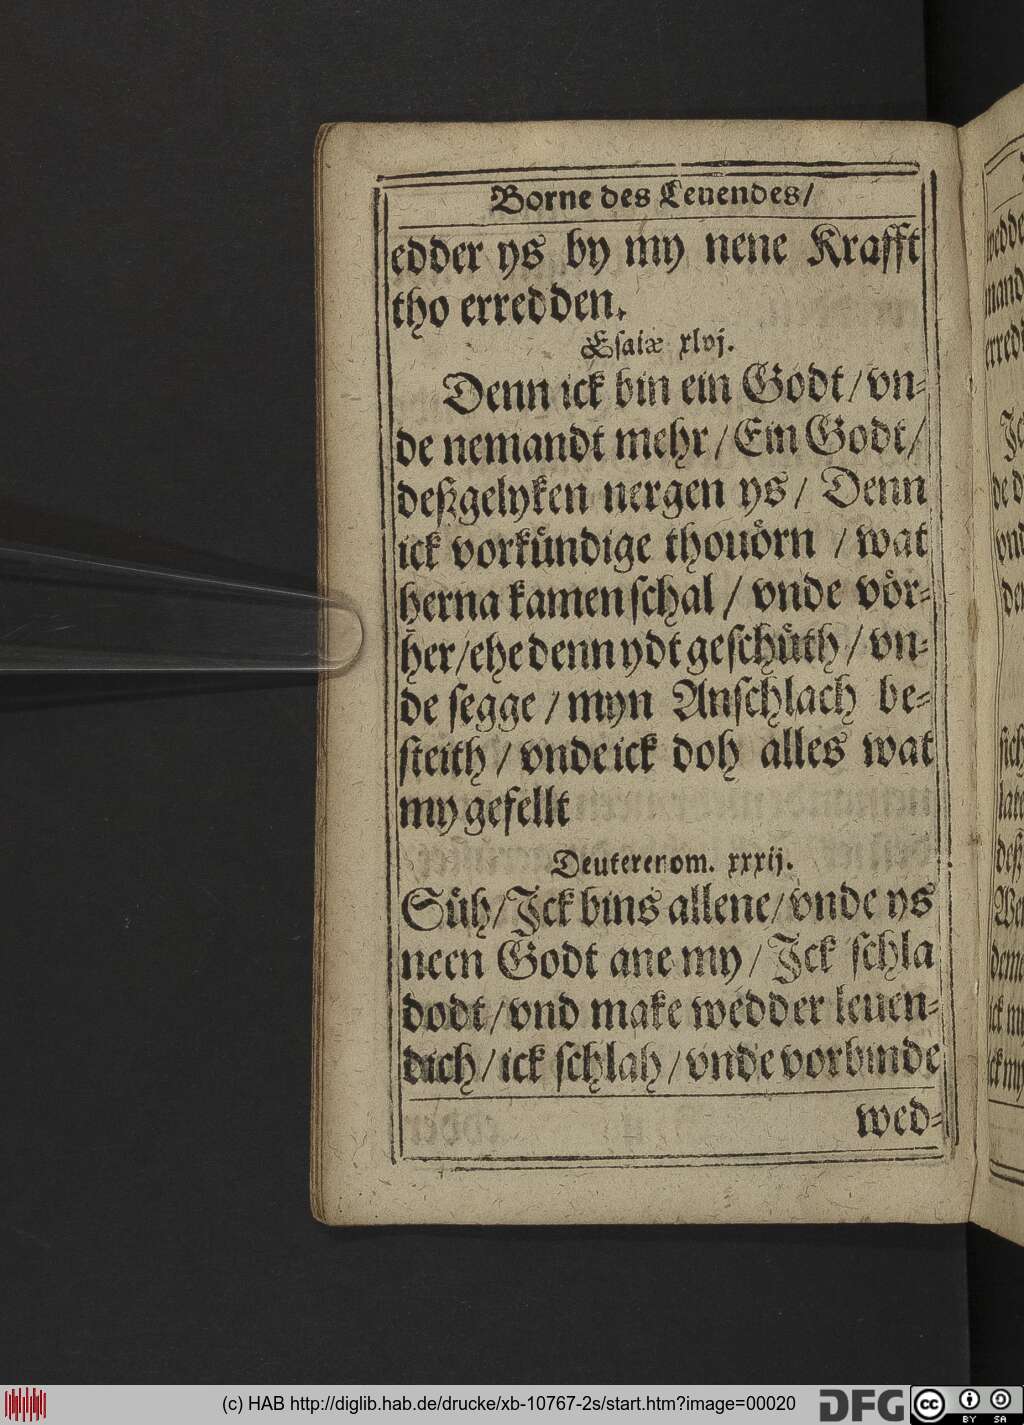 Borne des Leuendes/
edder ys by my nene Krafft
tho erredden.
Esaiæ xlvj.
Denn ick bin ein Godt/ vn⸗
de nemandt mehr/ Ein Godt/
deßgelyken nergen ys/ Denn
ick vorkuͤndige thouoͤrn / wat
herna kamen schal/ vnde voͤr⸗
her/ ehe denn ydt geschuͤth/ vn⸗
de segge / myn Anschlach be⸗
steith/ vnde ick doh alles wat
my gefellt
Deuterenom. xxxij.
Suͤh/ Jck bins allene/ vnde ys
neen Godt ane my/ Jck schla
dodt/ vnd make wedder leuen⸗
dich/ ick schlah/ vnde vorbinde
wed⸗
(c) HAB http://diglib.hab.de/drucke/xb-10767-2s/start.htm?image=00020
DFG
cc
BY SA